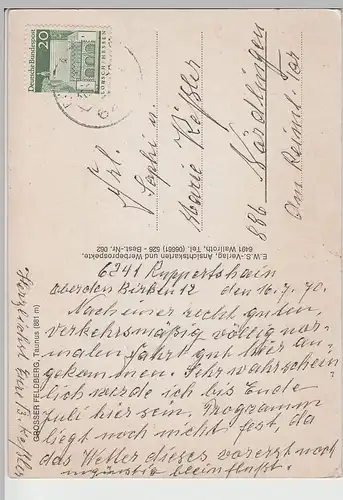 Deutsche Bundespost
20
LORSCH/HESSEN
Frl.
Sophie u.
Marie Keßler
886 Nördlingen
Am Reimlinger Tor
E.S.W.-Verlag, Ansichtskarten und Werbeprospekte,
6491 Wallroth, Tel. (06661) 526 - Best.-Nr. 062
GROSSER FELDBERG, Taunus (881 m)
6241 Ruppertshain
Oberden Birken 12 den 16.7.70.
Nach einer recht guten,
verkehrsmäßig völlig nor-
malen Fahrt gut hier an-
gekommen. Sehr wahrschein-
lich werde ich bis Ende
Juli hier sein. Programm
liegt noch nicht fest, da
das Wetter dieses vorerst noch
ungünstig beeinflußt.
Herzlichst Euer B. Keßler